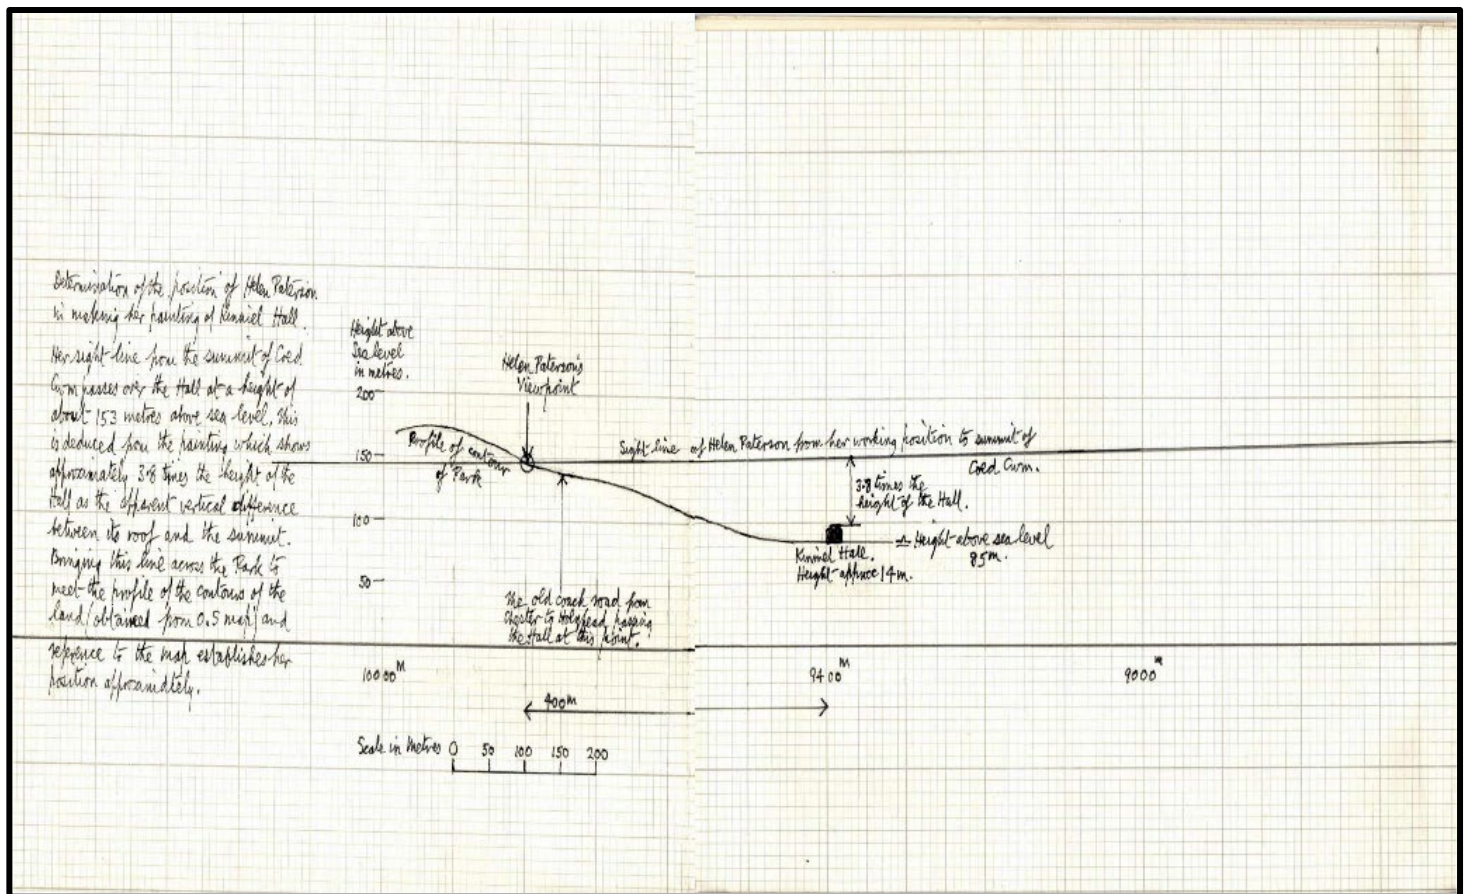 Determination of the position of Helen Paterson
in making her painting of Kinmel Hall.
Her sight-line from the summit of Coed
Cwm passes over the Hall at a height of
about 153 metres above sea level, this
is deduced from the painting which shows
approximately 3.8 times the height of the
Hall as the apparent vertical difference
between its roof and the summit.
Bringing this line across the Park to
meet the profile of the contours of the
land (obtained from 0.5 map) and
reference to the map establishes her
position approximately.
Height above
Sea level
in metres.
200
150
100
50
Helen Paterson's
Viewpoint
Profile of contour
of Park
Sight-line of Helen Paterson from her working position to summit of
Coed Cwm.
3.8 times the
height of the Hall.
Height above sea level
85m.
Kinmel Hall.
Height approx 14m.
The old coach road from
Chester to Holyhead passing
the Hall at this point.
10000 M
9400 M
9000 M
400m
Scale in Metres 0 50 100 150 200